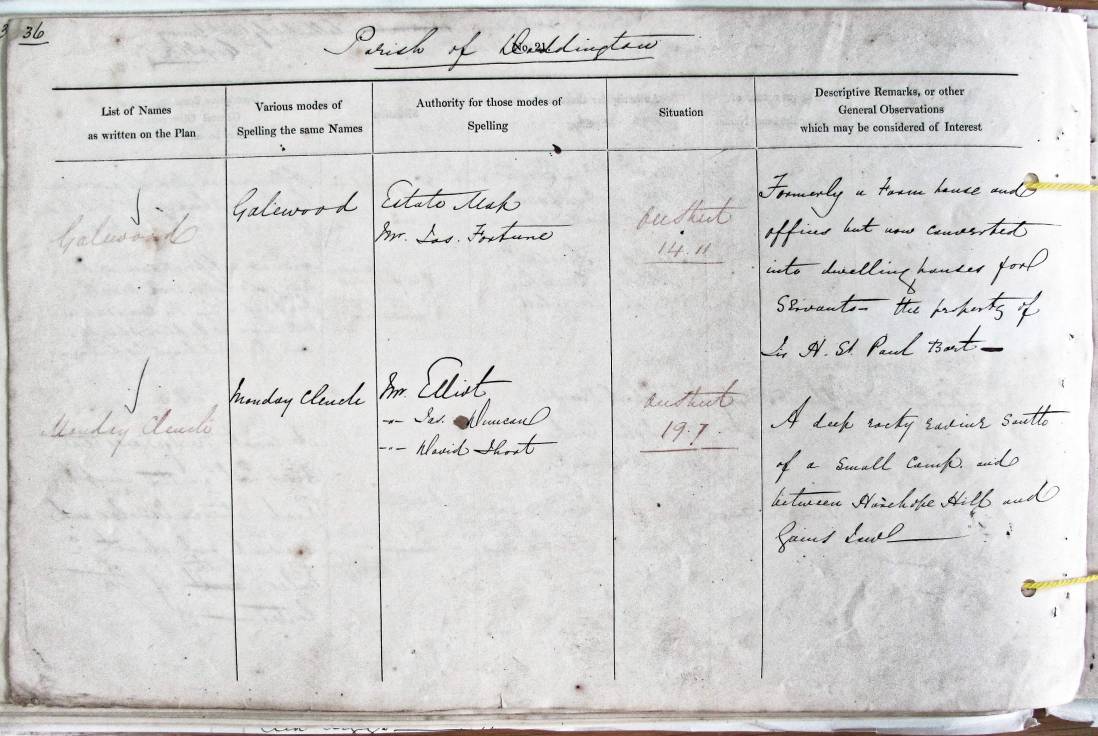 36
Parish of Doddington
No. 21
List of Names
as written on the Plan
Various modes of
Spelling the same Names
Authority for those modes of
Spelling
Situation
Descriptive Remarks, or other
General Observations
which may be considered of Interest
Galewood
Galewood
Estate Map
Mr. Jas. Fortune
on Sheet
14.11
Formerly a Farm house and
offices but now converted
into dwelling houses for
Servants - the property of
Sir H. St. Paul Bart -
Monday Cleuch
Monday Cleuch
Mr. Elliot
-"- Jas. Duncan
-"- David Short
on Sheet
19.7.
A deep rocky ravine South
of a Small Camp. and
between Harehope Hill and
Gains Law